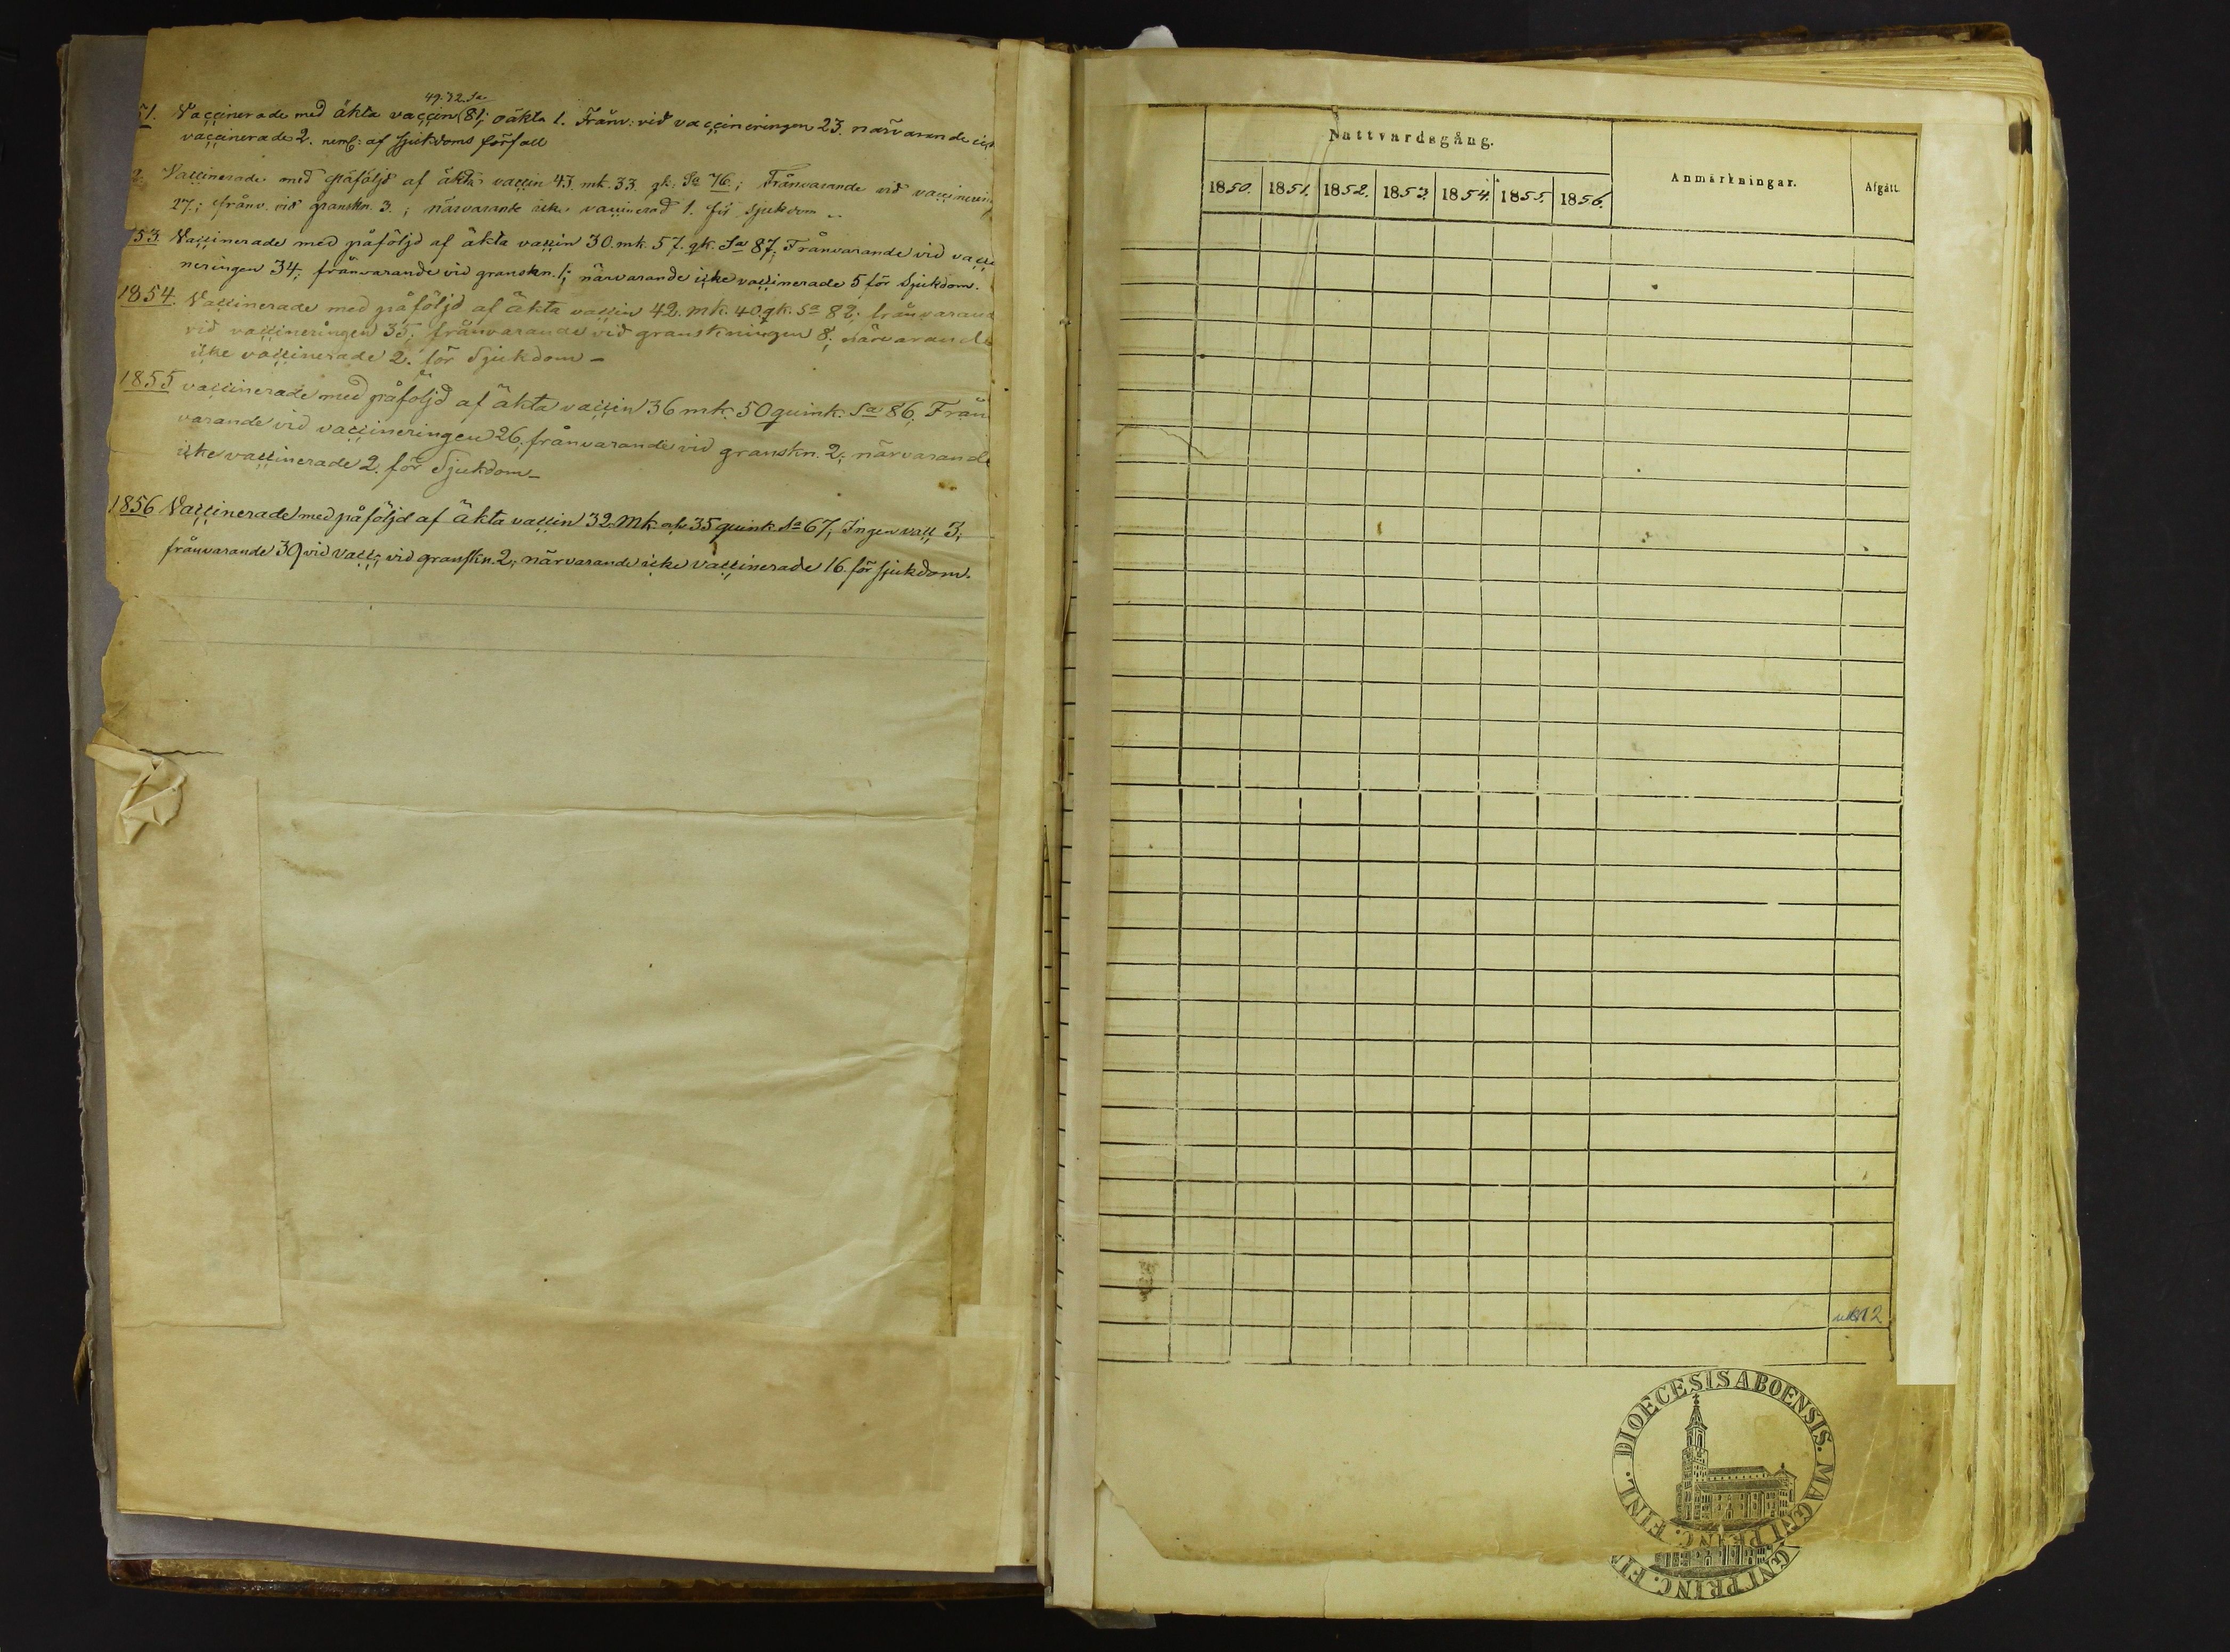 49. 32. Sa
51. Vaccinerade med äkta vaccin 81; oäkta 1. Frånv: vid vaccineringen 23. närvarande
vaccinerade 2. neml: af Sjukdoms förfall
2. Vaccinerade med påföljd af äkta vaccin 43 mk. 33. qk: Sa 76; Frånvarande vid vaccinerin
27.; frånv. vid granskn. 3.; närvarande icke vaccinerad 1. för Sjukdom
53. Vaccinerade med påföljd af äkta vaccin 30. mk. 57. qk. Sa 87; Frånvarande vid vacci
neringen 34; frånvarande vid granskn. 1; närvarande icke vaccinerade 5 för Sjukdom.
1854. Vaccinerade med påföljd af äkta vaccin 42. mk. 40. qk. Sa 82; frånvarand
vid vaccineringen 35; frånvarande vid granskningen 8; närvarande
icke vaccinerade 2. för Sjukdom –
1855 vaccinerade med påföljd af äkta vaccin 36 mk. 50 quink. Sa 86; Från
varande vid vaccineringen 26, frånvarande vid granskn. 2; närvarande
icke vaccinerade 2. för Sjukdom –
1856 Vaccinerade med påföljd af äkta vaccin 32 Mk och 35 quink Sa 67; Ingen vacc 3;
frånvarande 39 vid Vacc; vid granskn. 2; närvarande icke vaccinerade 16. för sjukdom.
Nattvardsgång.
Anmärkningar.
Afgått.
1850. 1851. 1852. 1853. 1854. 1855. 1856.
DIOECESIS ABOENSIS. MAGNI PRINC. FINL.
GNI PRINC. FI